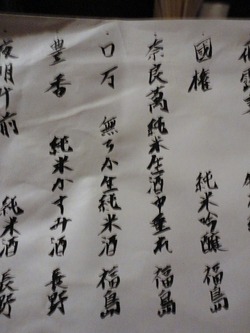 國権 純米吟醸 福島
奈良萬 純米生酒中垂れ 福島
口万 無ろか生純米酒 福島
豊香 純米かすみ酒 長野
夜明け前 純米酒 長野